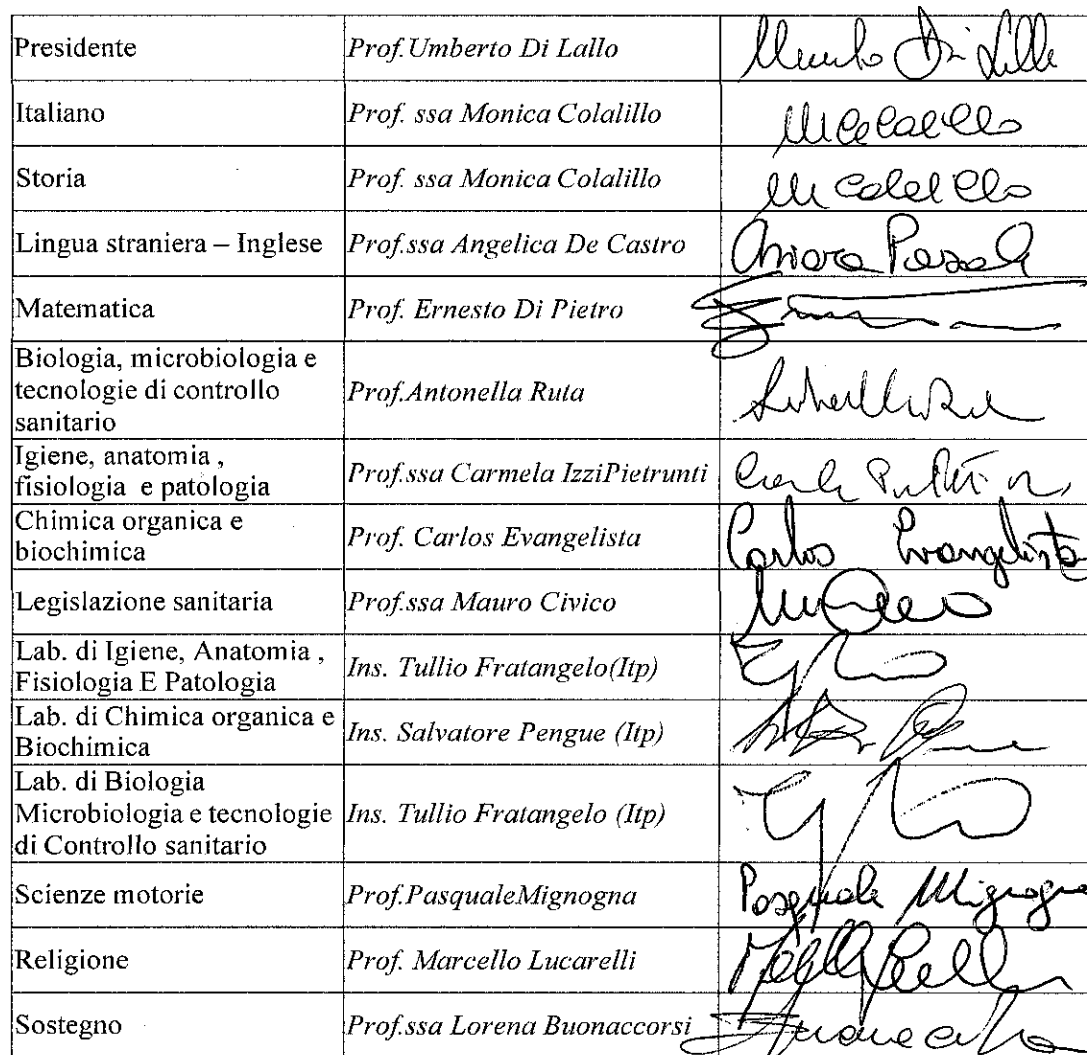 Presidente Prof.Umberto Di Lallo Umberto Di Lallo
Italiano Prof. ssa Monica Colalillo M Colalillo
Storia Prof. ssa Monica Colalillo M Colalillo
Lingua straniera – Inglese Prof.ssa Angelica De Castro Chiara
Matematica Prof. Ernesto Di Pietro
Biologia, microbiologia e
tecnologie di controllo Prof.Antonella Ruta
sanitario
Igiene, anatomia ,
fisiologia e patologia Prof.ssa Carmela IzziPietrunti
Chimica organica e
biochimica Prof. Carlos Evangelista Carlos Evangelista
Legislazione sanitaria Prof.ssa Mauro Civico
Lab. di Igiene, Anatomia ,
Fisiologia E Patologia Ins. Tullio Fratangelo(Itp)
Lab. di Chimica organica e
Biochimica Ins. Salvatore Pengue (Itp)
Lab. di Biologia
Microbiologia e tecnologie Ins. Tullio Fratangelo (Itp)
di Controllo sanitario
Scienze motorie Prof.PasqualeMignogna Pasquale Mignogna
Religione Prof. Marcello Lucarelli
Sostegno Prof.ssa Lorena Buonaccorsi